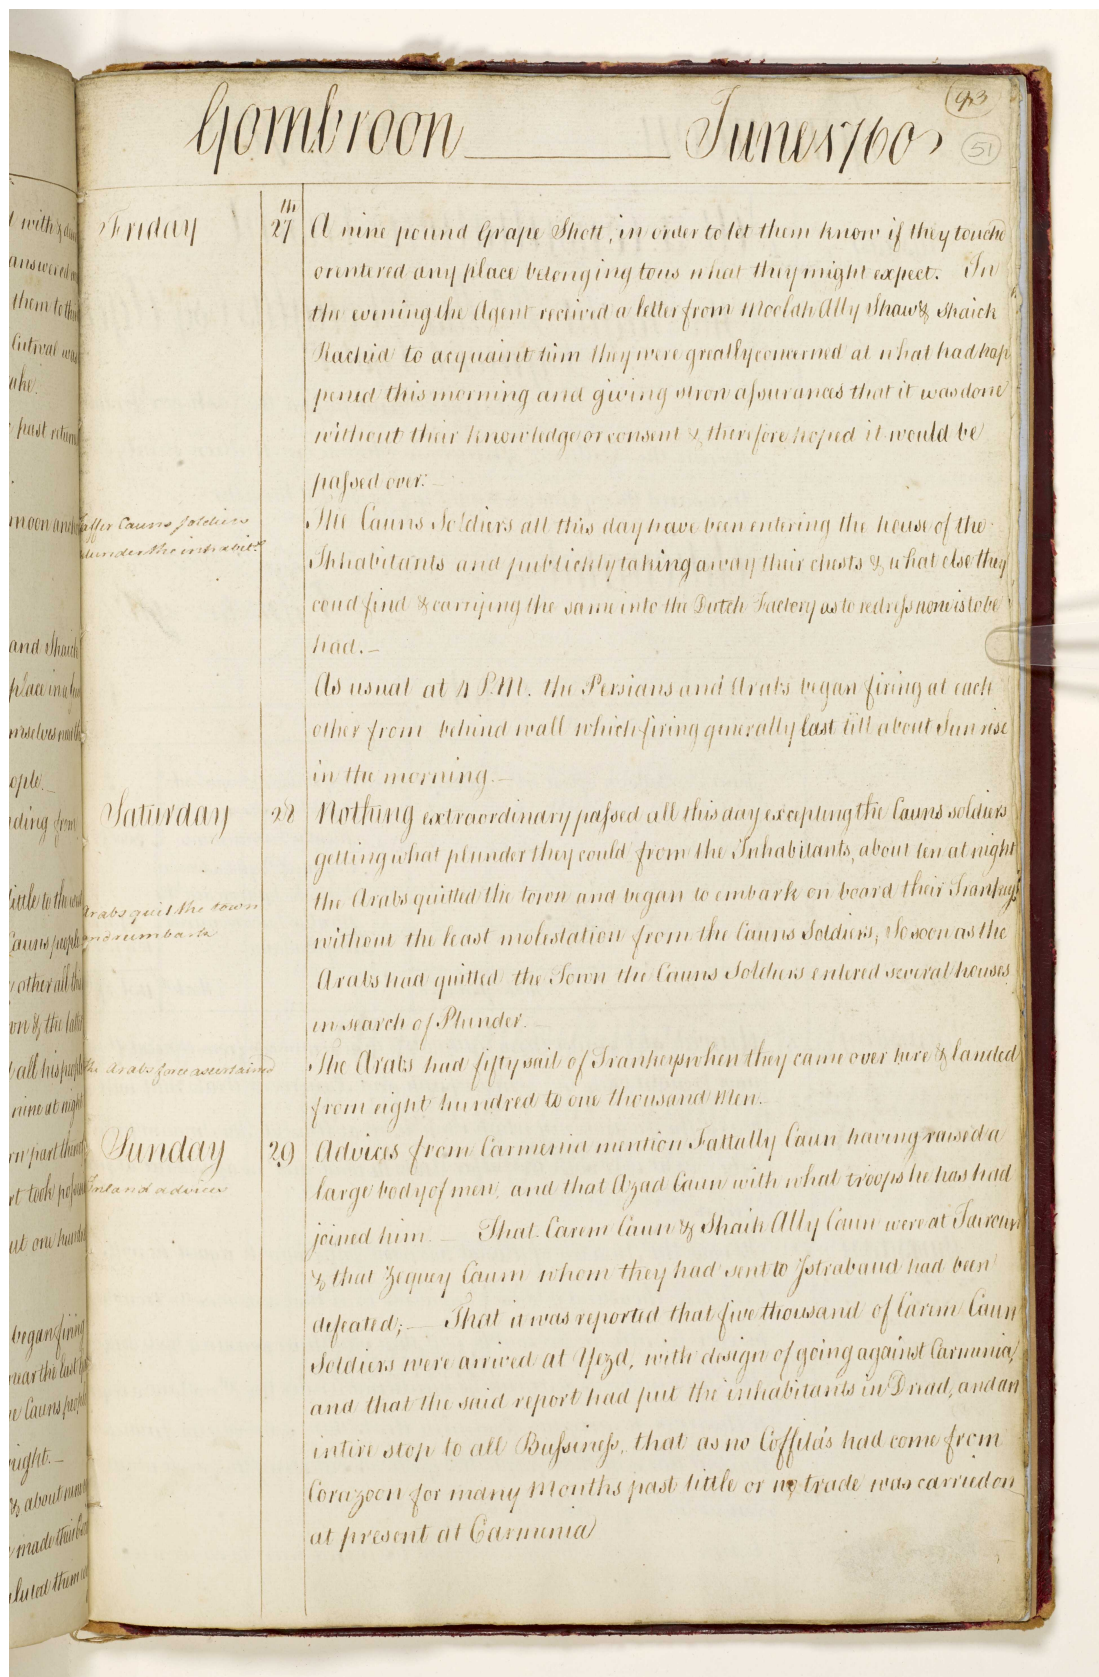 Gombroon June 1760
93
51
Friday 27th A nine pound Grape Shott, in order to let them know if they touche
or entered any place belonging to us what they might expect. In
the evening the Agent received a letter from Moolah Ally Shaw & Shaick
Rachid to acquaint him they were greatly concerned at what had hap
pened this morning and giving stron assurances that it was done
without their knowledge or consent & therefore hoped it would be
passed over.
Jaffer Cauns soldiers
plunder the inhabits.
The Cauns Soldiers all this day have been entering the house of the
Inhabitants and publickly taking away their chests & what else they
coud find & carrijing the same into the Dutch Factory as to redress none is to be
had.
As usual at 4 P.M. the Persians and Arabs began firing at each
other from behind wall which firing generally last till about Sun rise
in the morning.
Saturday 28 Nothing extraordinary passed all this day excepting the Cauns soldiers
getting what plunder they could from the Inhabitants, about ten at night
Arabs quit the town
and imbark
the Arabs quitted the town and began to embark on board their Trankeys
without the least molestation from the Cauns Soldiers, So soon as the
Arabs had quitted the Town the Cauns Soldiers entered several houses
in search of Plunder.
The Arabs force ascertained
The Arabs had fifty sail of Trankeys when they came over here & landed
from eight hundred to one thousand Men.
Sunday 29 Advices from Carmenia mention Fattally Caun having raised a
Inland advices
large body of men, and that Azad Caun with what troops he has had
joined him. That Carem Caun & Shaik Ally Caun were at
& that Zequey Caun whom they had sent to Istrabaud had been
defeated; That it was reported that five thousand of Carem Caun
Soldiers were arrived at Yezd, with design of going against Carmenia,
and that the said report had put the inhabitants in Dread, and an
intire stop to all Bussiness, that as no Coffila's had come from
Corazoon for many Months past little or no trade was carried on
at present at Carmenia